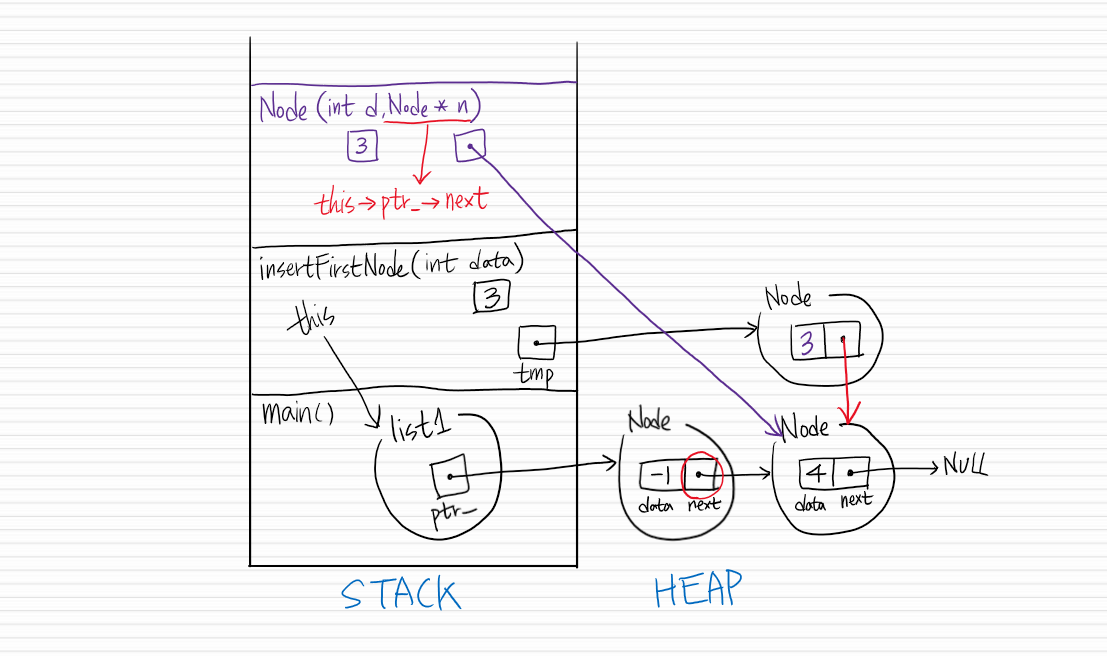 Node (int d, Node * n)
3
this→ptr_→next
insertFirstNode(int data)
3
this
tmp
main()
list1
ptr_
Node
3
Node
-1
data next
Node
4
data next
NULL
STACK
HEAP